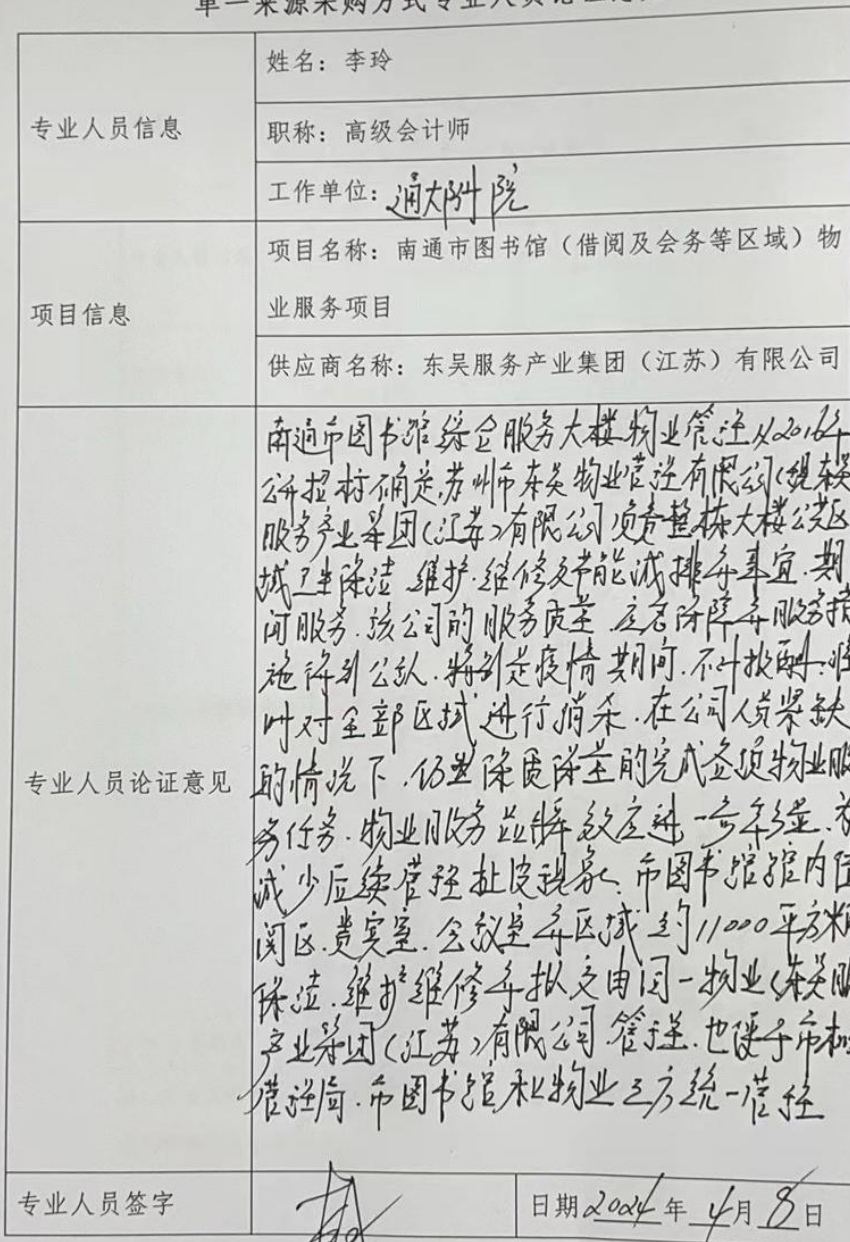 单一来源采购方式专业人员论证意
专业人员信息
姓名：李玲
职称：高级会计师
工作单位：通大附院
项目信息
项目名称：南通市图书馆（借阅及会务等区域）物
业服务项目
供应商名称：东吴服务产业集团（江苏）有限公司
专业人员论证意见
南通市图书馆综合服务大楼物业管理从2016年
公开招标确定苏州市东吴物业管理有限公司(现东吴
服务产业集团(江苏)有限公司)负责整栋大楼公共区
域卫生保洁、维护、维修及节能减排等事宜.期
间服务.该公司的服务质量、应急保障等服务措
施得到公认.特别是疫情期间.不计报酬.
时对全部区域进行消杀.在公司人员紧缺
的情况下.仍然保质保量的完成各项物业服
务任务.物业服务
减少后续管理扯皮现象、市图书馆馆内借
阅区.贵宾室.会议室等区域约11000平方米
保洁.维护维修等拟交由同一物业(东吴服
产业集团(江苏)有限公司.管理.也便于市机
管理局.市图书馆和物业三方统一管理
专业人员签字
日期2024年4月8日